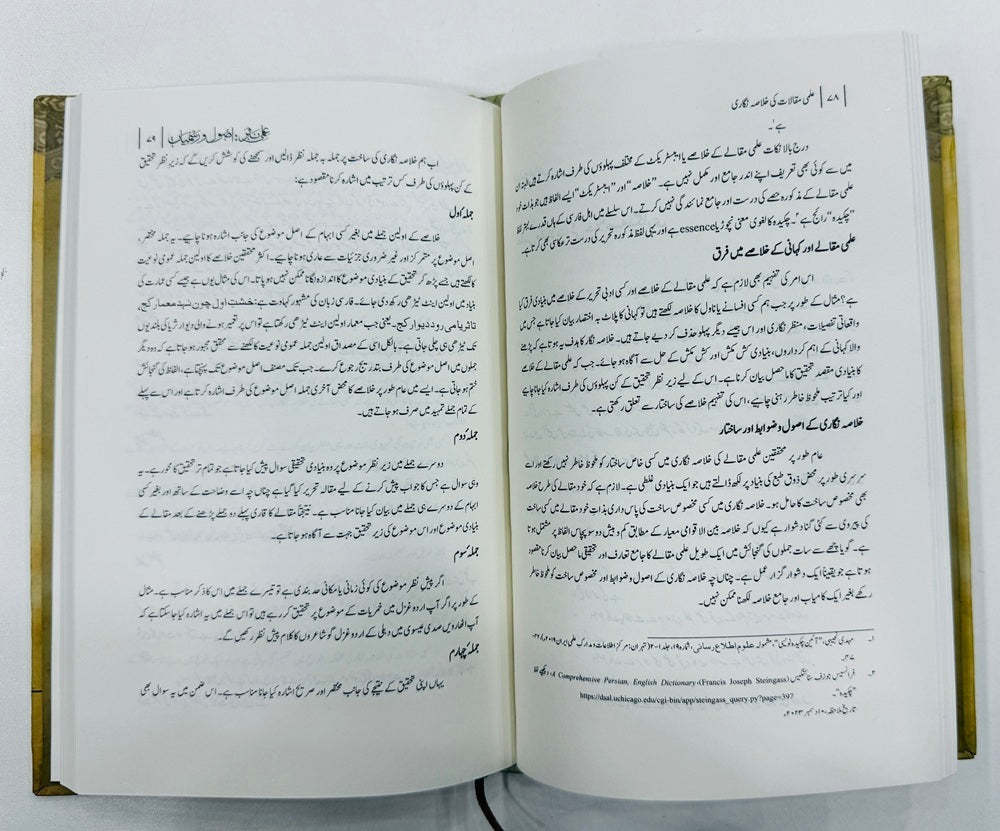 |۷۸| علمی مقالات کی خلاصہ نگاری
ہے'۔
درج بالا نکات علمی مقالے کے خلاصے یا ایبسٹریکٹ کے مختلف پہلوؤں کی طرف اشارہ کرتے ہیں البتہ ان
میں سے کوئی بھی تعریف اپنے اندر جامع اور مکمل نہیں ہے۔ ”خلاصہ“ اور ”ایبسٹریکٹ“ ایسے الفاظ ہیں جو بذاتِ خود
علمی مقالے کے مذکورہ حصے کی درست اور جامع نمائندگی نہیں کرتے۔ اس سلسلے میں اہل فارسی کے ہاں قدرے بہتر لفظ
”چکیدہ“ رائج ہے۲۔ چکیدہ کا لغوی معنی نچوڑ یا essence ہے اور یہی لفظ مذکورہ تحریر کی درست ترعکاسی بھی کرتا ہے۔
علمی مقالے اور کہانی کے خلاصے میں فرق
اس امر کی تفہیم بھی لازم ہے کہ علمی مقالے کے خلاصے اور کسی ادبی تحریر کے خلاصے میں بنیادی فرق کیا
ہے؟ مثال کے طور پر جب ہم کسی افسانے یا ناول کا خلاصہ لکھتے ہیں تو کہانی کا پلاٹ بہ اختصار بیان کیا جاتا ہے جس میں
واقعاتی تفصیلات، منظر نگاری اور اس جیسے دیگر پہلو حذف کر دیے جاتے ہیں۔ خلاصہ نگار کا ہدف یہ ہوتا ہے کہ پڑھنے
والا کہانی کے اہم کرداروں، بنیادی کش مکش اور کش مکش کے حل سے آگاہ ہو جائے۔ جب کہ علمی مقالے کے خلاصے
کا بنیادی مقصد تحقیق کا ماحصل بیان کرنا ہے۔ اس کے لیے زیر نظر تحقیق کے کن پہلوؤں کی طرف اشارہ کیا جانا چاہیے
اور کیا ترتیب ملحوظ خاطر رہنی چاہیے، اس کی تفہیم خلاصے کی ساختار سے تعلق رکھتی ہے۔
خلاصہ نگاری کے اصول و ضوابط اور ساختار
عام طور پر محققین علمی مقالے کی خلاصہ نگاری میں کسی خاص ساختار کو ملحوظ خاطر نہیں رکھتے اور اسے
سرسری طور پر محض ذوق طبع کی بنیاد پر لکھ ڈالتے ہیں جو ایک بنیادی غلطی ہے۔ لازم ہے کہ خود مقالے کی طرح خلاصہ
بھی مخصوص ساخت کا حامل ہو۔ خلاصہ نگاری میں کسی مخصوص ساخت کی پاس داری بذاتِ خود مقالے میں ساخت
کی پیروی سے کئی گنا دشوار ہے کیوں کہ خلاصہ بین الاقوامی معیار کے مطابق کم و بیش دو سو پچاس الفاظ پر مشتمل ہوتا
ہے۔ گویا چھے سے سات جملوں کی گنجائش میں ایک طویل علمی مقالے کا جامع تعارف اور تحقیقی ماحصل بیان کرنا مقصود
ہوتا ہے جو یقیناً ایک دشوار گزار عمل ہے۔ چناں چہ خلاصہ نگاری کے اصول و ضوابط اور مخصوص ساخت کو ملحوظ خاطر
رکھے بغیر ایک کامیاب اور جامع خلاصہ لکھنا ممکن نہیں۔
۱۔ مہدی نجیبی، ”آئین چکیدہ نویسی“، مشمولہ علوم اطلاع رسانی، شمارہ ۱۹، جلد ۱-۲ (تہران: مرکز اطلاعات و مدارک علمی ایران، ۲۰۱۹ء)، ۴۲-
۴۷۔
۲۔ فرانسیس جوزف سٹائنگیس (Francis Joseph Steingass)، A Comprehensive Persian, English Dictionary، دیکھیے لفظ
”چکیدہ“۔ https://dsal.uchicago.edu/cgi-bin/app/steingass_query.py?page=397
تاریخ ملاحظہ، ۱۰ دسمبر ۲۰۲۳ء۔
|۷۹|
اب ہم خلاصہ نگاری کی ساخت پر جملہ بہ جملہ نظر ڈالیں اور سمجھنے کی کوشش کریں گے کہ زیر نظر تحقیق
کے کن پہلوؤں کی طرف کس ترتیب میں اشارہ کرنا مقصود ہے:
جملہ اول
خلاصے کے اولین جملے میں بغیر کسی ابہام کے اصل موضوع کی جانب اشارہ ہونا چاہیے۔ یہ جملہ مختصر،
اصل موضوع پر متمرکز اور غیر ضروری جزئیات سے عاری ہونا چاہیے۔ اکثر محققین خلاصے کا اولین جملہ عمومی نوعیت
کا لکھتے ہیں جسے پڑھ کر تحقیق کے بنیادی موضوع کا اندازہ لگانا ممکن نہیں ہو پاتا۔ اس کی مثال یوں ہے جیسے کسی عمارت کی
بنیاد میں اولین اینٹ ٹیڑھی رکھ دی جائے۔ فارسی زبان کی مشہور کہاوت ہے: خشتِ اول چون نہد معمار کج،
تا ثریا می رود دیوار کج۔ یعنی جب معمار اولین اینٹ ٹیڑھی رکھتا ہے تو اس پر تعمیر ہونے والی دیوار ثریا کی بلندیوں
تک ٹیڑھی ہی چلی جاتی ہے۔ بالکل اسی کے مصداق اولین جملہ عمومی نوعیت کا لکھنے سے محقق مجبور ہو جاتا ہے کہ وہ دیگر
جملوں میں اصل موضوع کی طرف بتدریج رجوع کرے۔ جب تک مصنف اصل موضوع تک پہنچتا ہے، الفاظ کی گنجائش
ختم ہو جاتی ہے۔ ایسے میں عام طور پر خلاصے کا محض آخری جملہ اصل موضوع کی طرف اشارہ کرتا ہے اور اس سے پہلے
کے تمام جملے تمہید میں صرف ہو جاتے ہیں۔
جملہ دوم
دوسرے جملے میں زیر نظر موضوع پر وہ بنیادی تحقیقی سوال پیش کیا جاتا ہے جو تمام تر تحقیق کا محور ہے۔ یہ
وہی سوال ہے جس کا جواب پیش کرنے کے لیے مقالہ تحریر کیا گیا ہے چناں چہ اسے وضاحت کے ساتھ اور بغیر کسی
ابہام کے دوسرے ہی جملے میں بیان کیا جانا مناسب ہے۔ نتیجتاً مقالے کا قاری پہلے دو جملے پڑھنے کے بعد مقالے کے
بنیادی موضوع اور اس موضوع کی زیر تحقیق جہت سے آگاہ ہو جاتا ہے۔
جملہ سوم
اگر پیش نظر موضوع کی کوئی زمانی یا مکانی حد بندی ہے تو تیسرے جملے میں اس کا ذکر مناسب ہے۔ مثال
کے طور پر اگر آپ اردو غزل میں خمریات کے موضوع پر تحقیق کر رہے ہیں تو اس جملے میں یہ اشارہ کیا جا سکتا ہے کہ
آپ اٹھارویں صدی عیسوی میں دہلی کے اردو غزل گو شاعروں کا کلام پیش نظر رکھیں گے۔
جملہ چہارم
یہاں اپنی تحقیق کے نتیجے کی جانب مختصر اور صریح اشارہ کیا جانا مناسب ہے۔ اس ضمن میں یہ سوال بھی